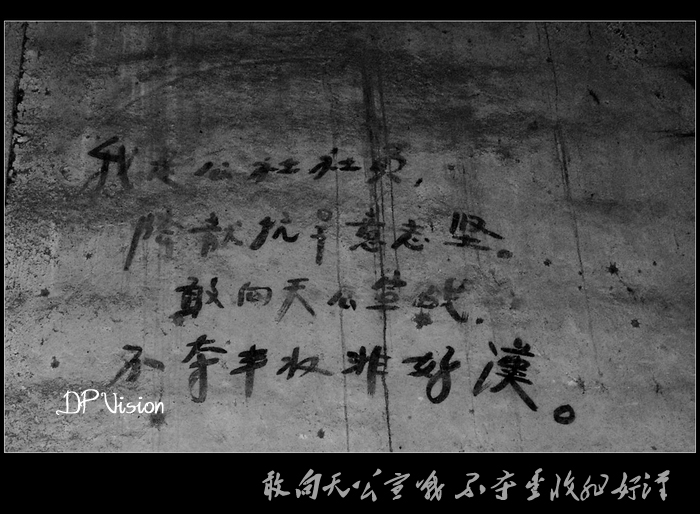 我是公社社员，
降敌抗旱意志坚。
敢向天公宣战，
不夺丰收非好漢。
DPVision
敢向天公宣战 不夺丰收非好漢